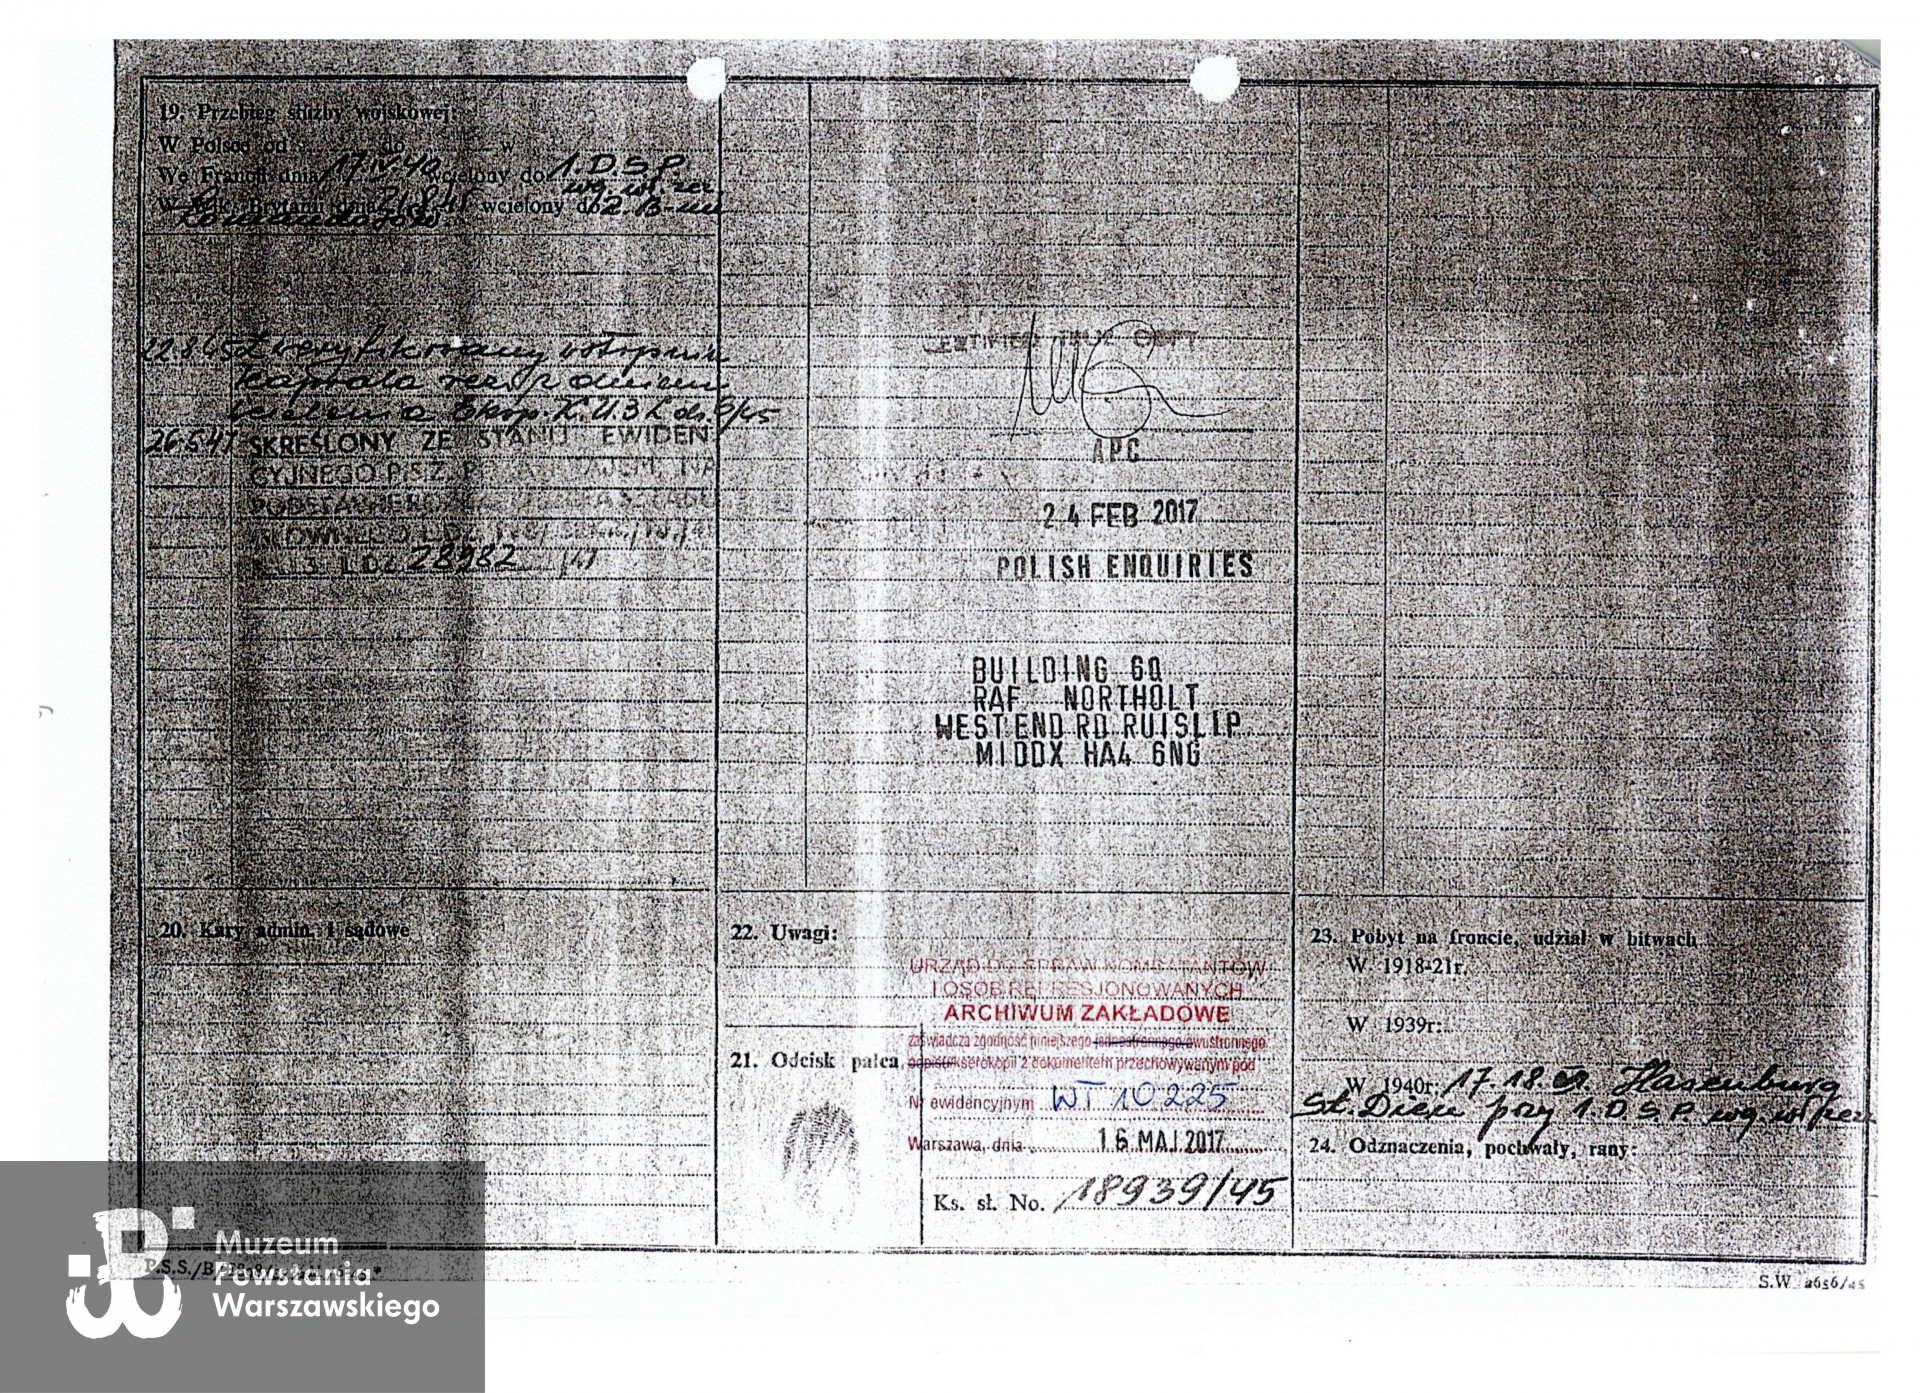 19. Przebieg służby wojskowej:
W Polsce od do w
We Francji dnia 17.IV.40 wcielony do 1.D.S.P.
wg. wł. zez.
W Wlk. Brytanii dnia 21.8.45 wcielony do 2. B-nu
Komandosów
22.8.45 Zweryfikowany w stopniu
Kaprala rez. z dniem
wcielenia
26.5.47 SKREŚLONY ZE STANU EWIDEN
CYJNEGO P.S.Z.
L.DZ. 28982 /47
CERTIFIED TRUE COPY
APC
24 FEB 2017
POLISH ENQUIRIES
BUILDING 60
RAF NORTHOLT
WEST END RD RUISLIP
MIDDX HA4 6NG
20. Kary admin. i sądowe
22. Uwagi:
URZĄD DO SPRAW KOMBATANTÓW
I OSÓB REPRESJONOWANYCH
ARCHIWUM ZAKŁADOWE
zaświadcza zgodność niniejszego jednostronnego/dwustronnego
odpisu/kserokopii z dokumentem przechowywanym pod
Nr ewidencyjnym WT 10225
Warszawa, dnia 16. MAJ 2017
21. Odcisk palca
Ks. sł. No. 18939/45
23. Pobyt na froncie, udział w bitwach
W 1918-21r.
W 1939r:
W 1940r: 17-18 Hasenburg
St. Dieu przy 1.D.S.P. wg. wł. zez.
24. Odznaczenia, pochwały, rany:
S.W. 2656/45
Muzeum
Powstania
Warszawskiego